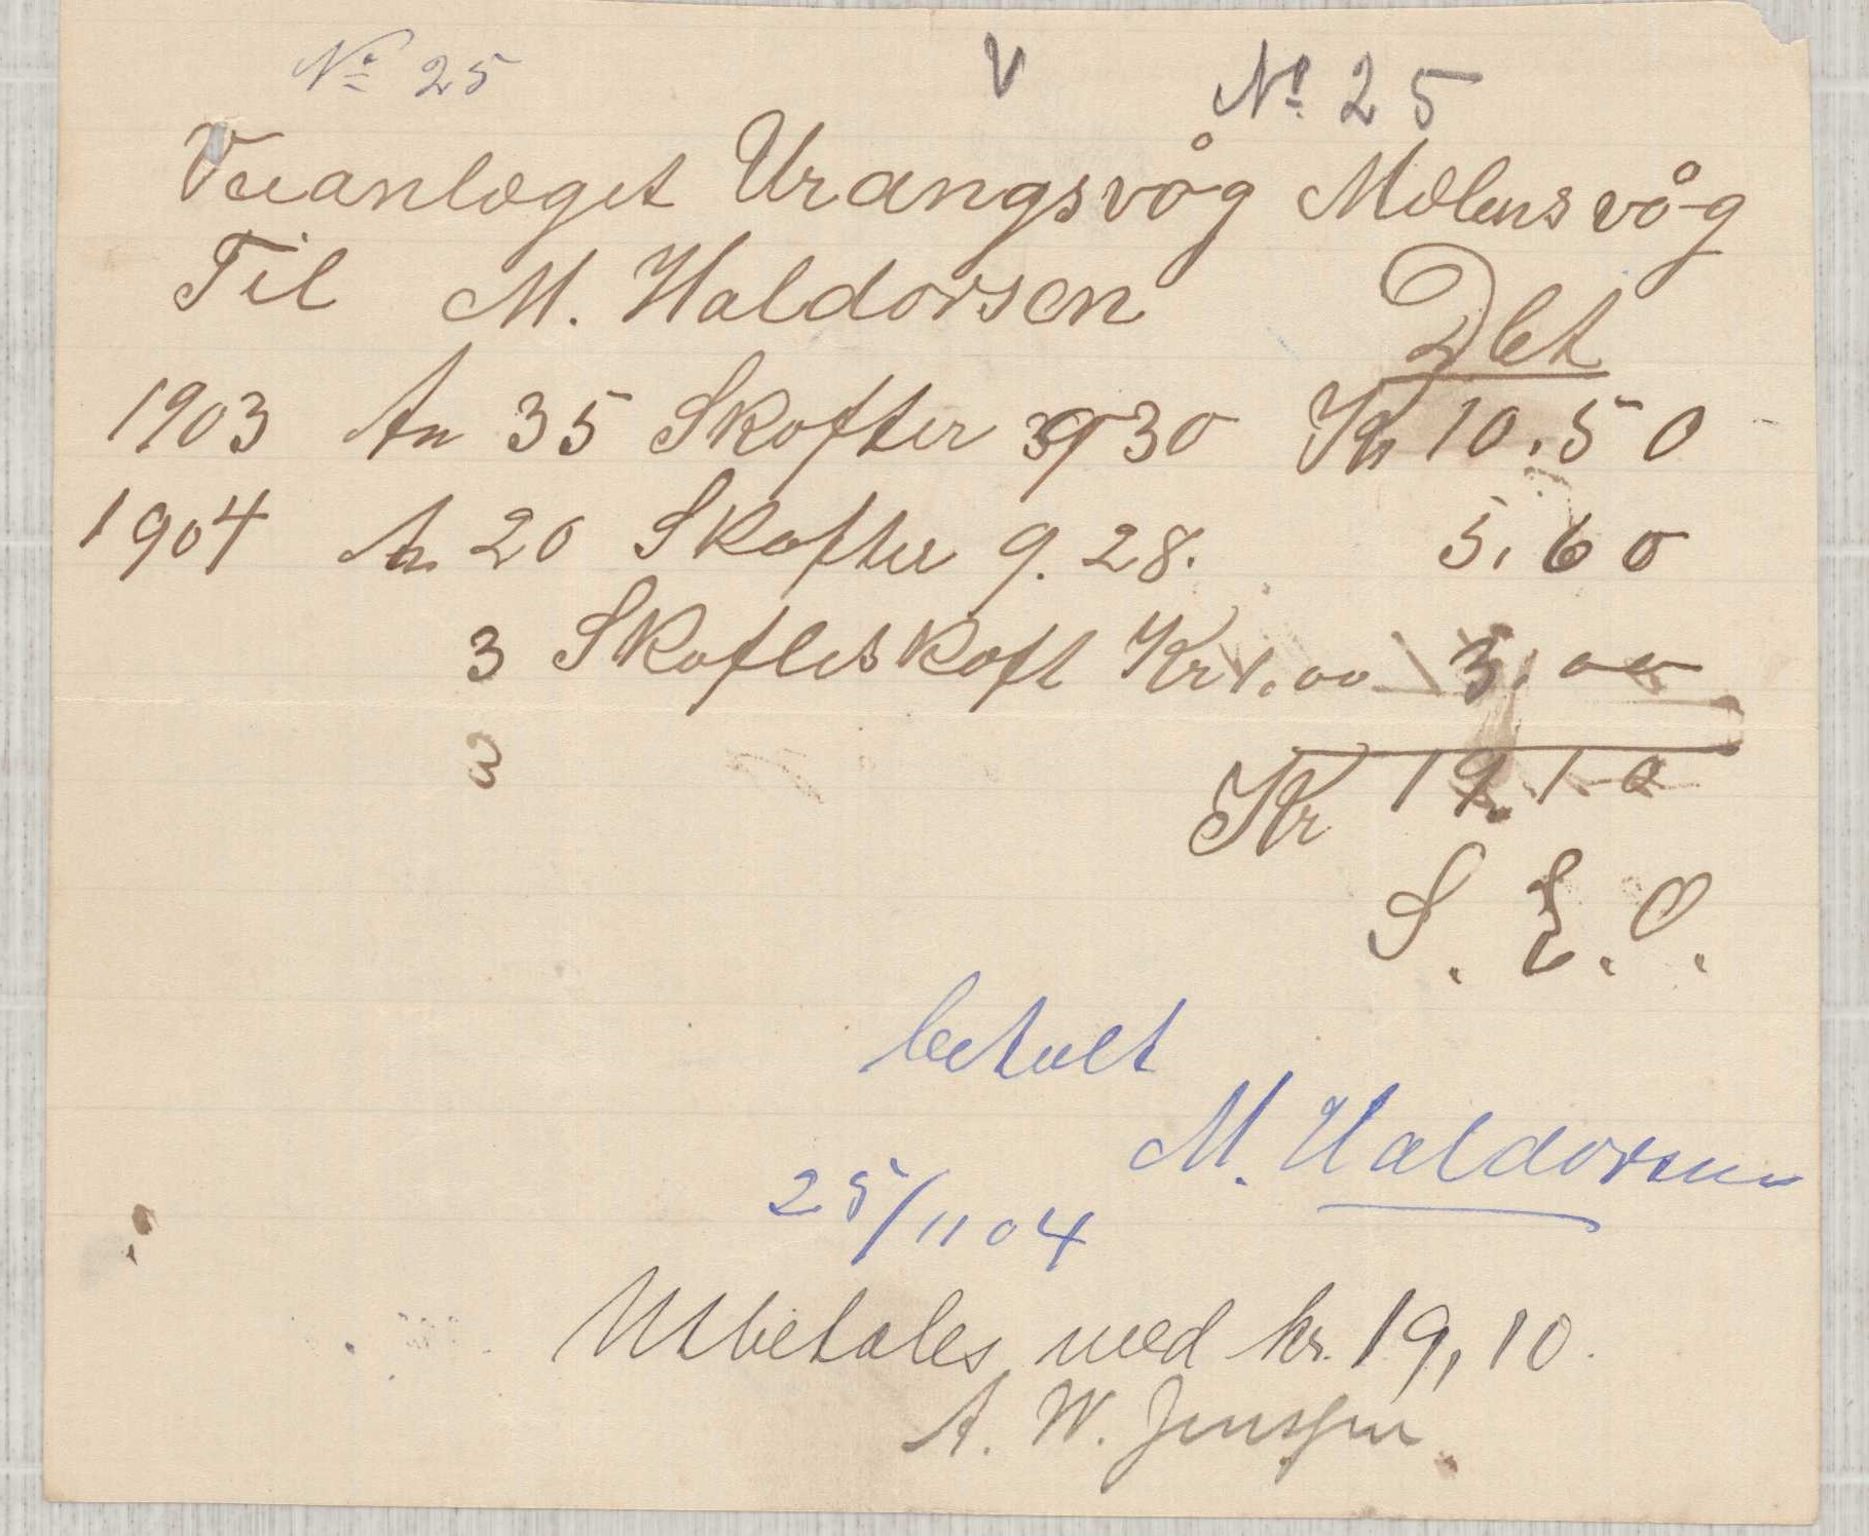 No 25 V No 25
Veianlæget Urangsvåg Mælensvåg
Til M. Haldorsen Dbt
1903 An 35 Skofter 30 Kr 10.50
1904 An 20 Skofter 9. 28. 5.60
3 Skofleskoft Kr 1.00 3.00
Kr 19.10
S. E. O.
betalt
M. Haldorsen
25/11 04
Utbetales med kr. 19,10.
A. W. Jenssen